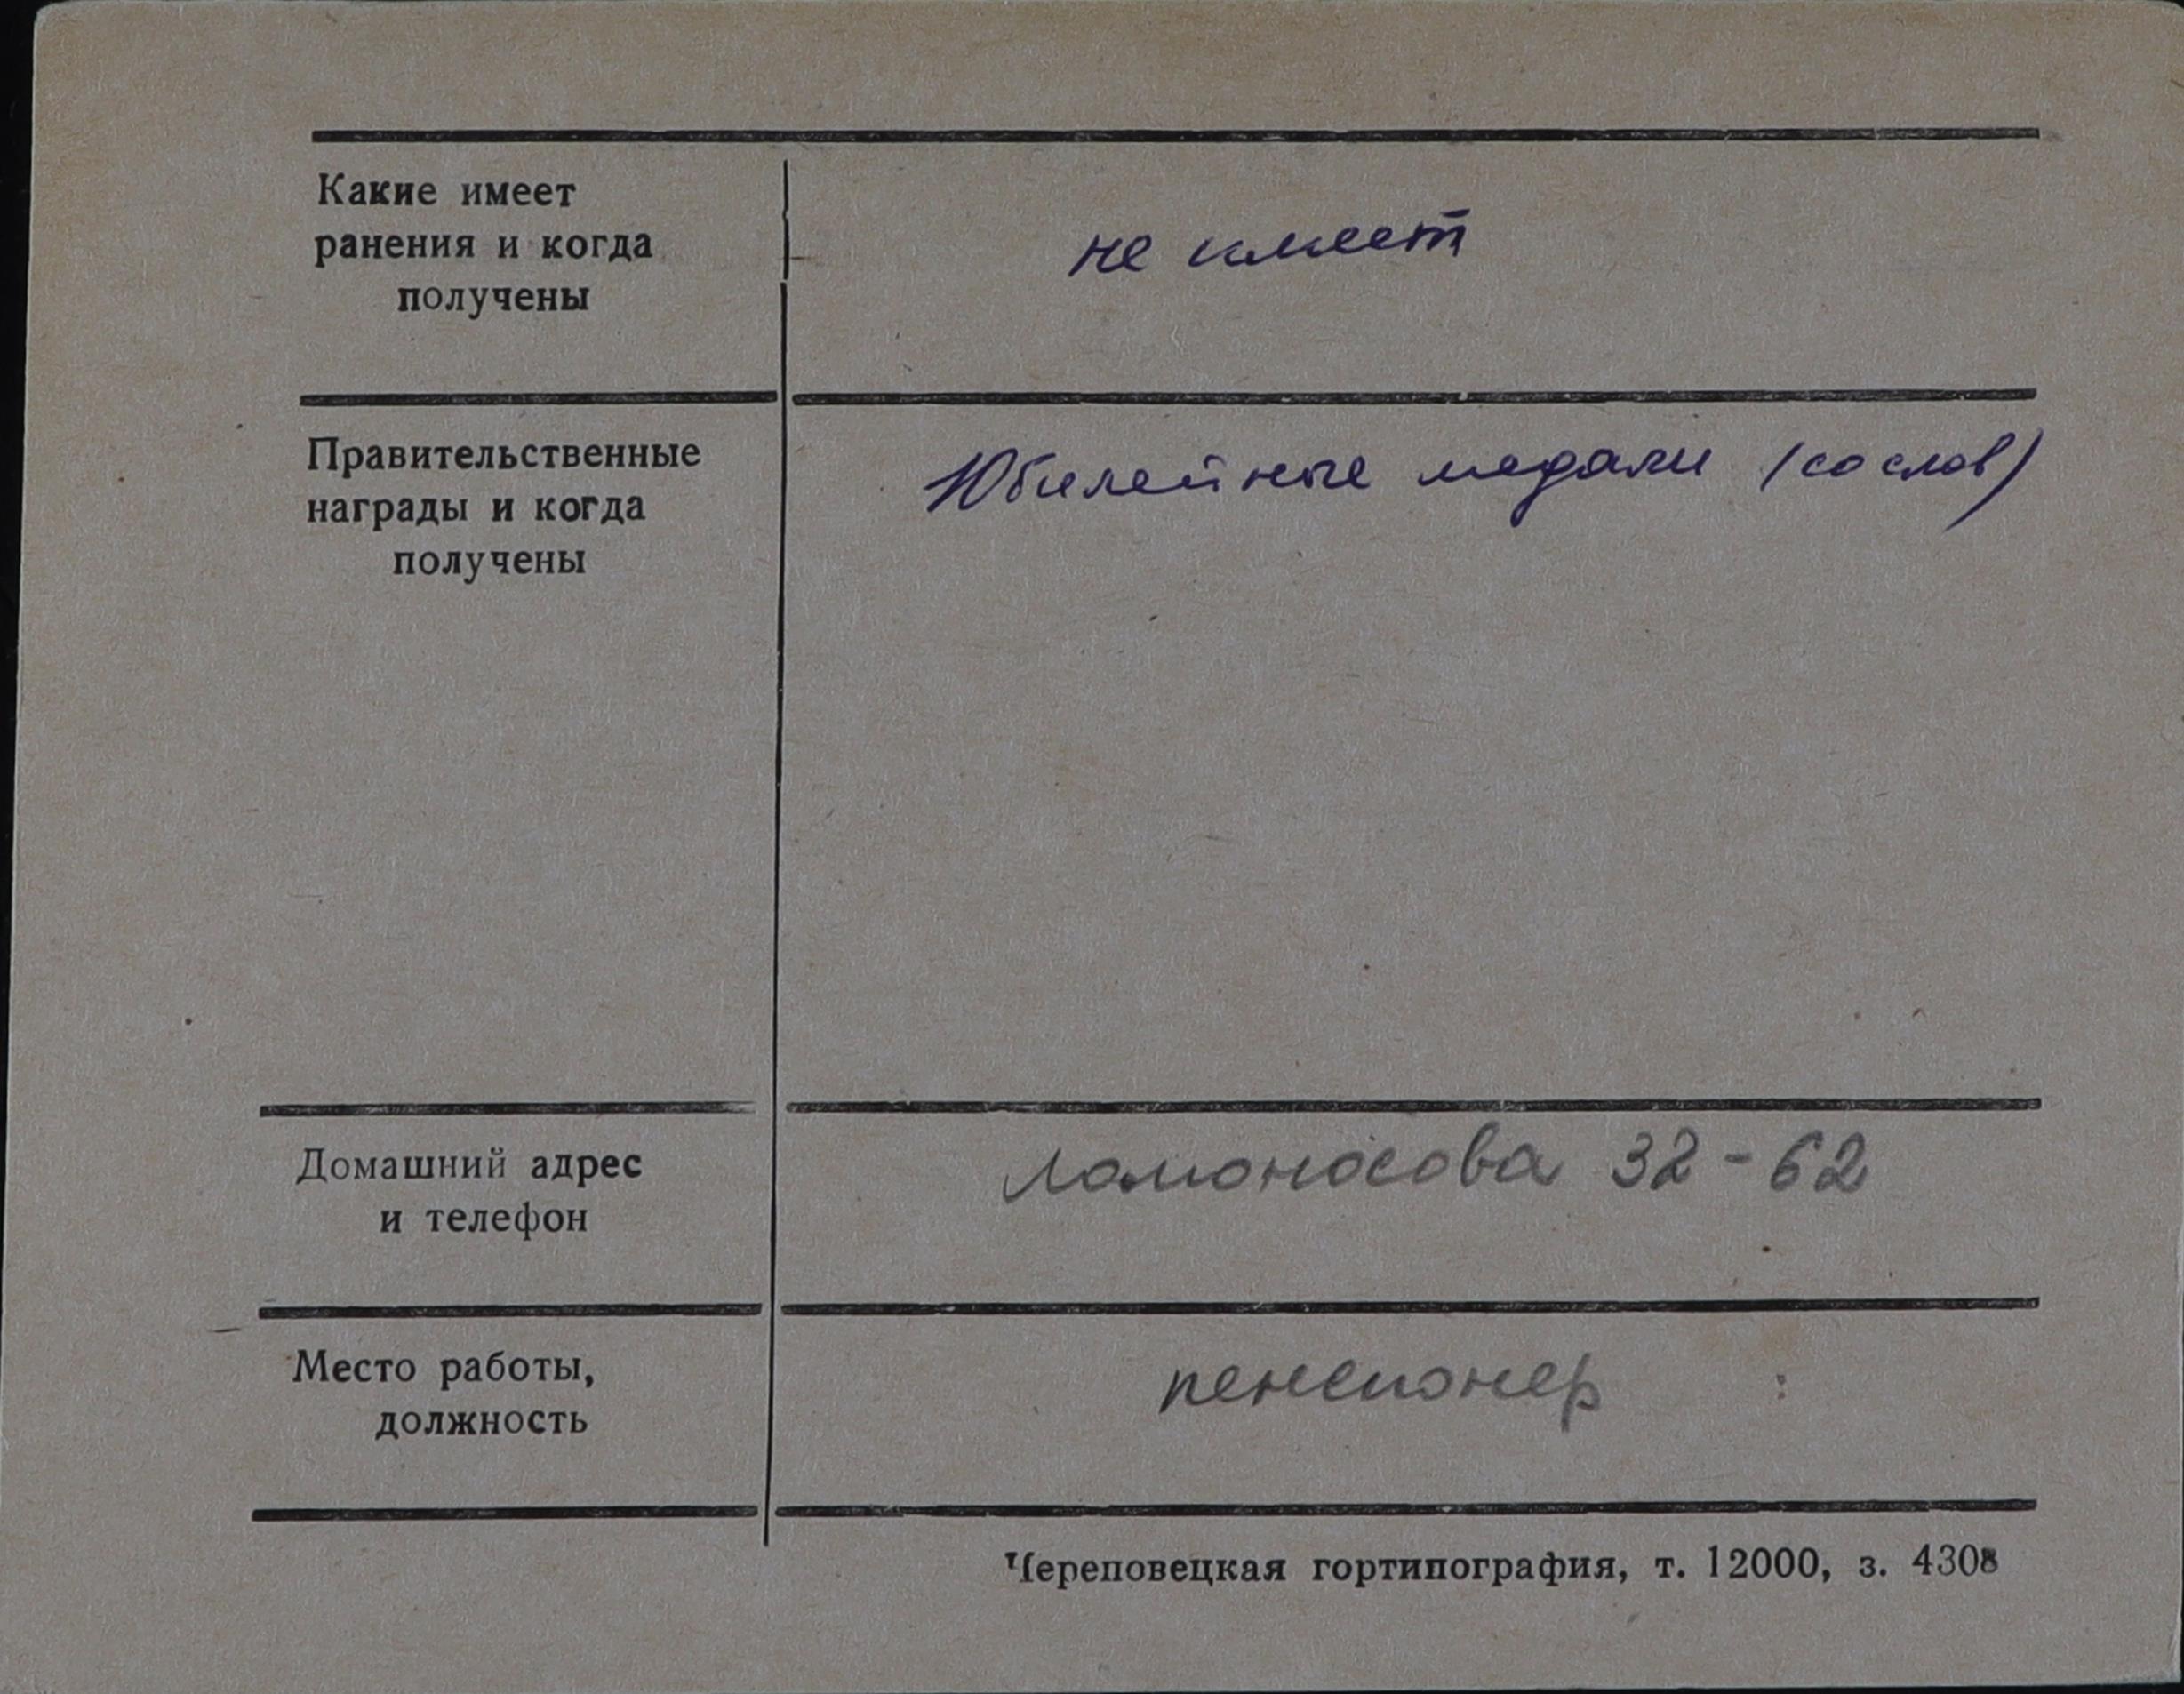 Какие имеет
ранения и когда
получены
не имеет
Правительственные
награды и когда
получены
Юбилейные медали (со слов)
Домашний адрес
и телефон
Ломоносова 32-62
Место работы,
должность
пенсионер
Череповецкая гортипография, т. 12000, з. 4308